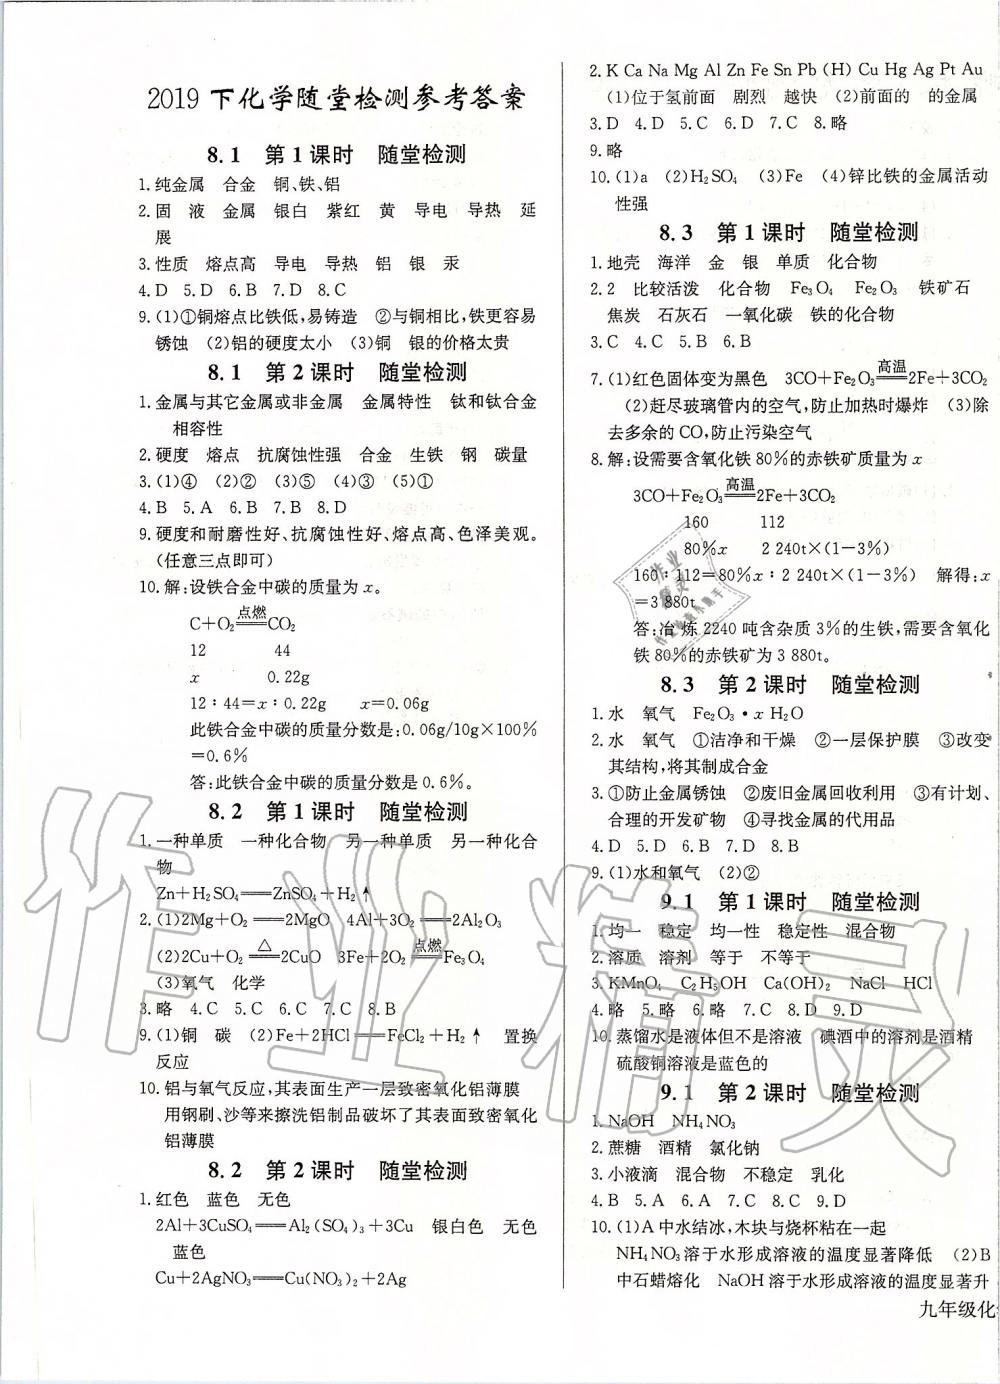 2019 下化学随堂检测参考答案
8.1 第1课时 随堂检测
1.纯金属 合金 铜、铁、铝
2.固 液 金属 银白 紫红 黄 导电 导热 延
展
3.性质 熔点高 导电 导热 铝 银 汞
4.D 5.D 6.B 7.D 8.C
9.(1)①铜熔点比铁低,易铸造 ②与铜相比,铁更容易
锈蚀 (2)铝的硬度太小 (3)铜 银的价格太贵
8.1 第2课时 随堂检测
1.金属与其它金属或非金属 金属特性 钛和钛合金
相容性
2.硬度 熔点 抗腐蚀性强 合金 生铁 钢 碳量
3.(1)④ (2)② (3)⑤ (4)③ (5)①
4.B 5.A 6.B 7.B 8.D
9.硬度和耐磨性好、抗腐蚀性好、熔点高、色泽美观。
(任意三点即可)
10.解:设铁合金中碳的质量为 x。
C+O₂══点燃══CO₂
12 44
x 0.22g
12∶44=x∶0.22g x=0.06g
此铁合金中碳的质量分数是:0.06g/10g×100%
=0.6%
答:此铁合金中碳的质量分数是 0.6%。
8.2 第1课时 随堂检测
1.一种单质 一种化合物 另一种单质 另一种化合
物
Zn+H₂SO₄══ZnSO₄+H₂↑
2.(1)2Mg+O₂══2MgO 4Al+3O₂══2Al₂O₃
(2)2Cu+O₂══△══2CuO 3Fe+2O₂══点燃══Fe₃O₄
(3)氧气 化学
3.略 4.C 5.C 6.C 7.C 8.B
9.(1)铜 碳 (2)Fe+2HCl══FeCl₂+H₂↑ 置换
反应
10.铝与氧气反应,其表面生产一层致密氧化铝薄膜
用钢刷、沙等来擦洗铝制品破坏了其表面致密氧化
铝薄膜
8.2 第2课时 随堂检测
1.红色 蓝色 无色
2Al+3CuSO₄══Al₂(SO₄)₃+3Cu 银白色 无色
蓝色
Cu+2AgNO₃══Cu(NO₃)₂+2Ag
2.K Ca Na Mg Al Zn Fe Sn Pb (H) Cu Hg Ag Pt Au
(1)位于氢前面 剧烈 越快 (2)前面的 的金属
3.D 4.D 5.C 6.D 7.C 8.略
9.略
10.(1)a (2)H₂SO₄ (3)Fe (4)锌比铁的金属活动
性强
8.3 第1课时 随堂检测
1.地壳 海洋 金 银 单质 化合物
2.2 比较活泼 化合物 Fe₃O₄ Fe₂O₃ 铁矿石
焦炭 石灰石 一氧化碳 铁的化合物
3.C 4.C 5.B 6.B
7.(1)红色固体变为黑色 3CO+Fe₂O₃══高温══2Fe+3CO₂
(2)赶尽玻璃管内的空气,防止加热时爆炸 (3)除
去多余的 CO,防止污染空气
8.解:设需要含氧化铁 80%的赤铁矿质量为 x
3CO+Fe₂O₃══高温══2Fe+3CO₂
160 112
80%x 2 240t×(1−3%)
160∶112=80%x∶2 240t×(1−3%) 解得:x
=3 880t
答:冶炼 2240 吨含杂质 3%的生铁,需要含氧化
铁 80%的赤铁矿为 3 880t。
8.3 第2课时 随堂检测
1.水 氧气 Fe₂O₃·x H₂O
2.水 氧气 ①洁净和干燥 ②一层保护膜 ③改变
其结构,将其制成合金
3.①防止金属锈蚀 ②废旧金属回收利用 ③有计划、
合理的开发矿物 ④寻找金属的代用品
4.D 5.D 6.B 7.D 8.B
9.(1)水和氧气 (2)②
9.1 第1课时 随堂检测
1.均一 稳定 均一性 稳定性 混合物
2.溶质 溶剂 等于 不等于
3.KMnO₄ C₂H₅OH Ca(OH)₂ NaCl HCl
4.略 5.略 6.略 7.C 8.D 9.D
10.蒸馏水是液体但不是溶液 碘酒中的溶剂是酒精
硫酸铜溶液是蓝色的
9.1 第2课时 随堂检测
1.NaOH NH₄NO₃
2.蔗糖 酒精 氯化钠
3.小液滴 混合物 不稳定 乳化
4.B 5.A 6.A 7.C 8.C 9.D
10.(1)A 中水结冰,木块与烧杯粘在一起
NH₄NO₃溶于水形成溶液的温度显著降低 (2)B
中石蜡熔化 NaOH 溶于水形成溶液的温度显著升
九年级化
作业精灵
作业
精灵